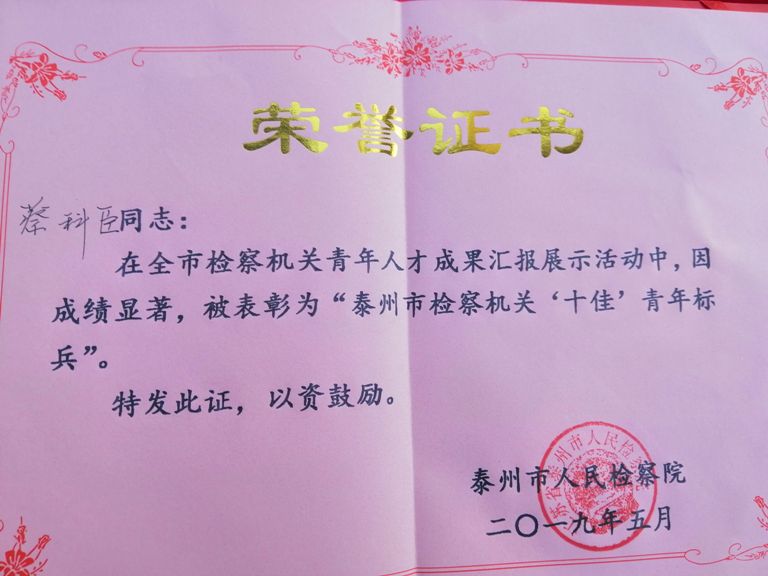 荣誉证书
蔡科臣同志：
在全市检察机关青年人才成果汇报展示活动中，因
成绩显著，被表彰为“泰州市检察机关‘十佳’青年标
兵”。
特发此证，以资鼓励。
泰州市人民检察院
二〇一九年五月
江苏省泰州市人民检察院